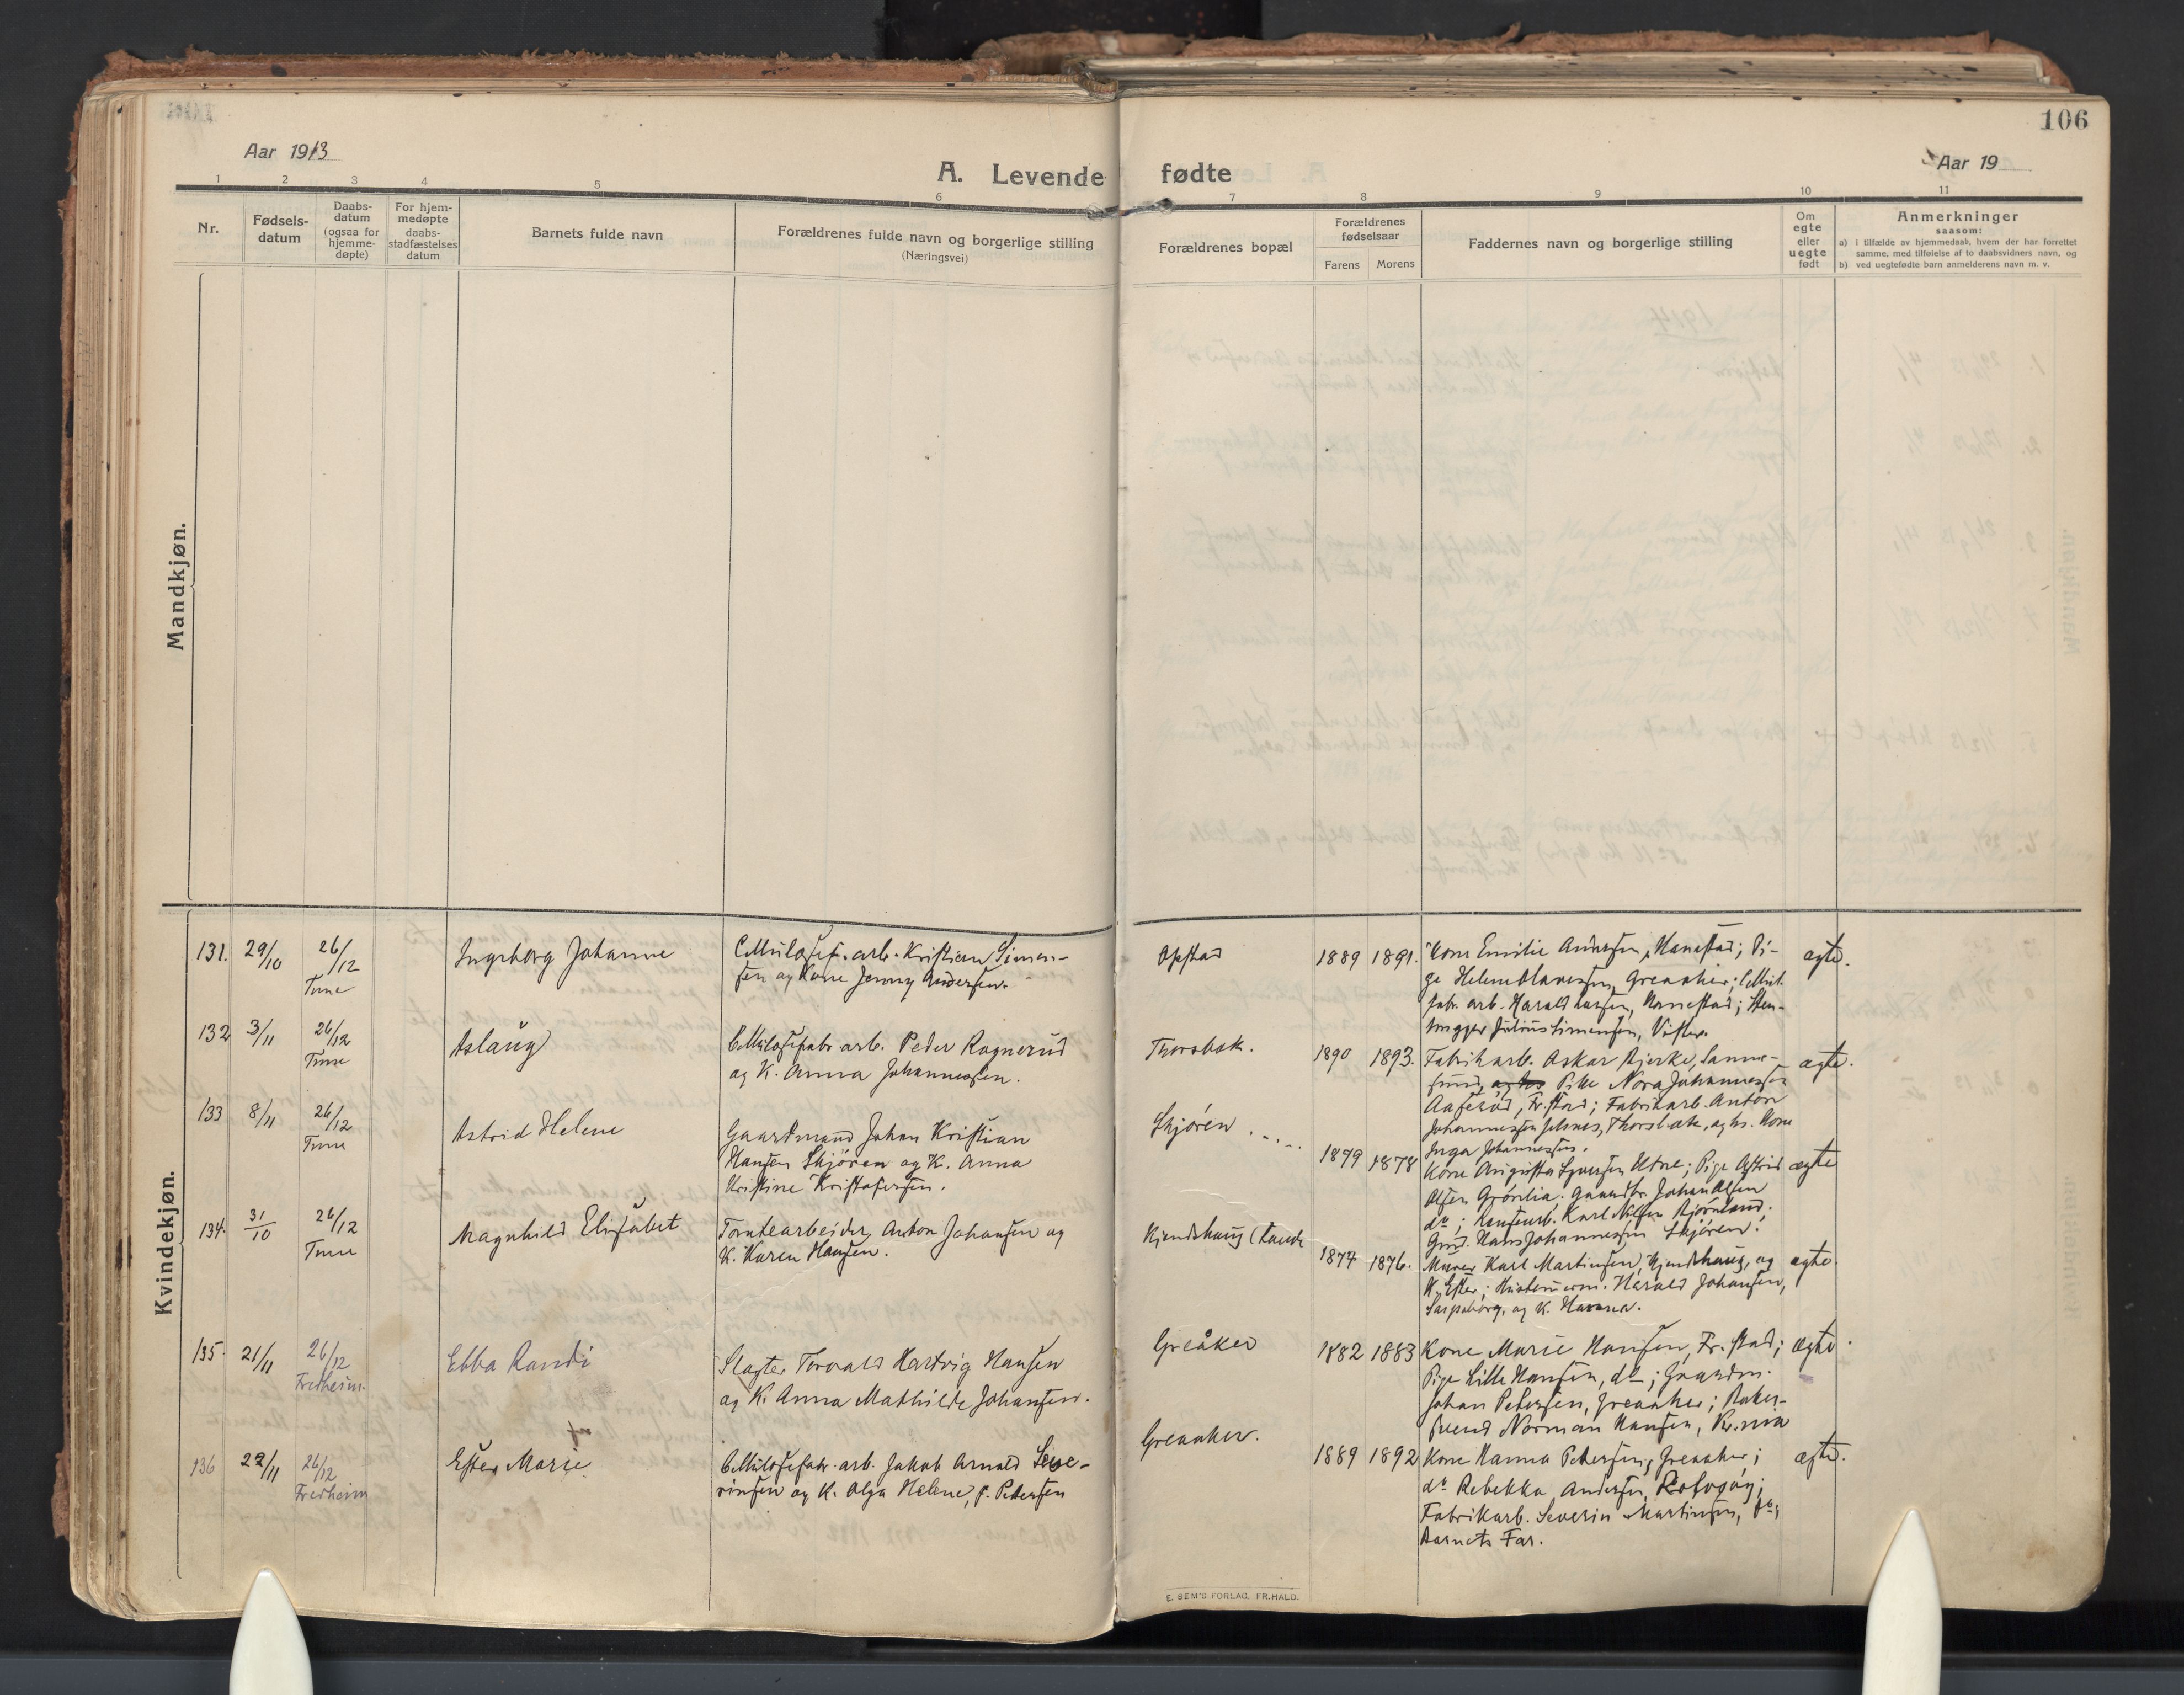 106
Aar 1913
A. Levende fødte
Aar 19
1 2 3 4 5 6 7 8 9 10 11
Nr.
Fødsels-
datum
Daabs-
datum
(ogsaa for
hjemme-
døpte)
For hjem-
medøpte
daabs-
stadfæstelses
datum
Barnets fulde navn
Forældrenes fulde navn og borgerlige stilling
(Næringsvei)
Forældrenes bopæl
Forældrenes
fødselsaar
Farens Morens
Faddernes navn og borgerlige stilling
Om
egte
eller
uegte
født
Anmerkninger
saasom:
a) i tilfælde av hjemmedaab, hvem der har forrettet
samme, med tilføielse af to daabsvidners navn, og
b) ved uegtefødte barn anmelderens navn m. v.
Mandkjøn.
Kvindekjøn.
131. 29/10 26/12
Tune
Ingeborg Johanne
Cellulosef. arb. Kristian Simen-
sen og Kone Jenny Andersen.
Opstad
1889 1891.
Kone Emilie Andersen, Hanestad; Pi-
ge Helene Olavessen, Greaaker; Cellul.
fabr. arb. Harald Larsen, Hannestad; Sten-
hugger Julius Simensen, Vister.
ægte.
132 3/11 26/12
Tune
Aslaug
Cellulosefabr. arb. Peder Ragnerud
og K. Anna Johannessen.
Thorsbæk.
1890 1893.
Fabrikarb. Askar Bjerke, Sanne-
sund, Pike Nora Johannessen
Fr.stad; Fabrikarb. Anton
Johannessen Thorsbæk, og hs. Kone
Inga Johannessen.
ægte.
133 8/11 26/12
Tune
Astrid Helene
Gaardmand Johan Kristian
Hansen Skjøren og K. Anna
Kristine Kristofersen.
Skjøren
1879 1878
Kone Augusta Syversen Utne; Pige Astrid
Olsen Grønlia. Gaardbr. Johan Olsen
do; Karl Nilsen Bjørnland;
Gmd. Hans Johannessen Skjøren.
ægte
134. 31/10 26/12
Tune
Magnhild Elisabet
Tomtearbeider Anton Johansen og
K. Karen Hansen.
Kjendshaug (Lande
1877 1876.
Murer Karl Martinsen, Kjendshaug, og
K. Ester; Harald Johansen,
Sarpsborg, og K. Hanna.
ægte.
135. 21/11 26/12
Fredheim.
Ebba Randi
Slagter Torvald Hartvig Hansen
og K. Anna Mathilde Johansen.
Greåker
1882 1883
Kone Marie Hansen, Fr.stad;
Pige Lille Hansen, do; Gaardm.
Johan Petersen, Greaaker; Baker-
svend Norman Hansen, Kr.nia
Ægte.
136 22/11 26/12
Fredheim
Ester Marie
Cellulosefabr. arb. Jakob Arnold Seve-
rinsen og K. Olga Helene, f. Petersen
Greaaker.
1889 1892
Kone Hanna Petersen, Greaaker;
do Rebekka Andersen, Rolvsøy;
Fabrikarb. Severin Martinsen, do;
Barnets Far.
ægte.
E. SEM'S FORLAG, FR.HALD.